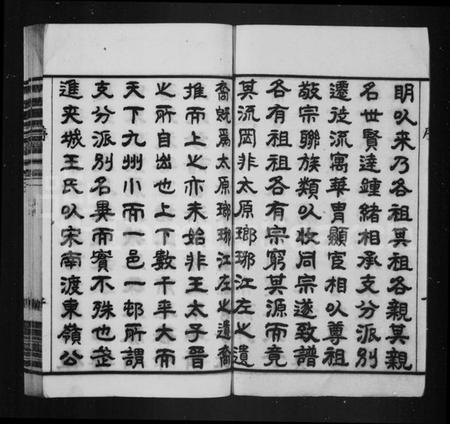 明以来乃各祖其祖各親其親
名世賢達鍾緒相承支分派別
遷徙流寓華胄顯宦相以尊祖
敬宗聯族類以收同宗遂致譜
各有祖祖各有宗窮其源而竟
其流罔非太原瑯琊江左之遺
裔既爲太原瑯琊江左之遺裔
推而上之亦未始非王太子晉
之所自出也上下數千年大而
天下九州小而一邑一邨所謂
支分派別名異而實不殊也武
進夾城王氏以宋南渡東嶺公
序